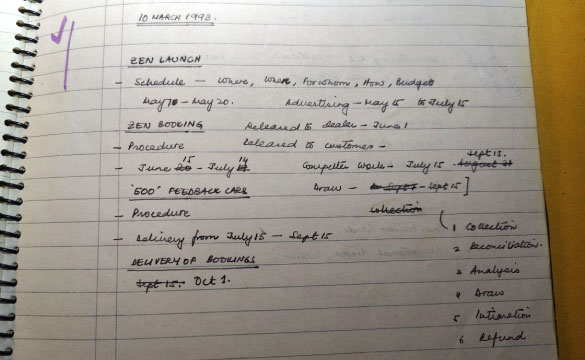 10 MARCH 1993.
ZEN LAUNCH
- Schedule - Where, When, For whom, How, Budgets
May 10 - May 20. Advertising - May 15 to July 15
ZEN BOOKING Released to dealer - June 1
- Procedure Released to customer -
- June 20 15 - July 14 Computer work - July 15 - August 31 Sept 15.
"500" FEEDBACK CARS Draw - Sept 15]
- Procedure Collection
- Delivery from July 15 - Sept 15
DELIVERY OF BOOKINGS
Sept 15. Oct 1.
1 Collection
2 Reconciliation.
3 Analysis
4 Draw
5 Intimation
6 Refund